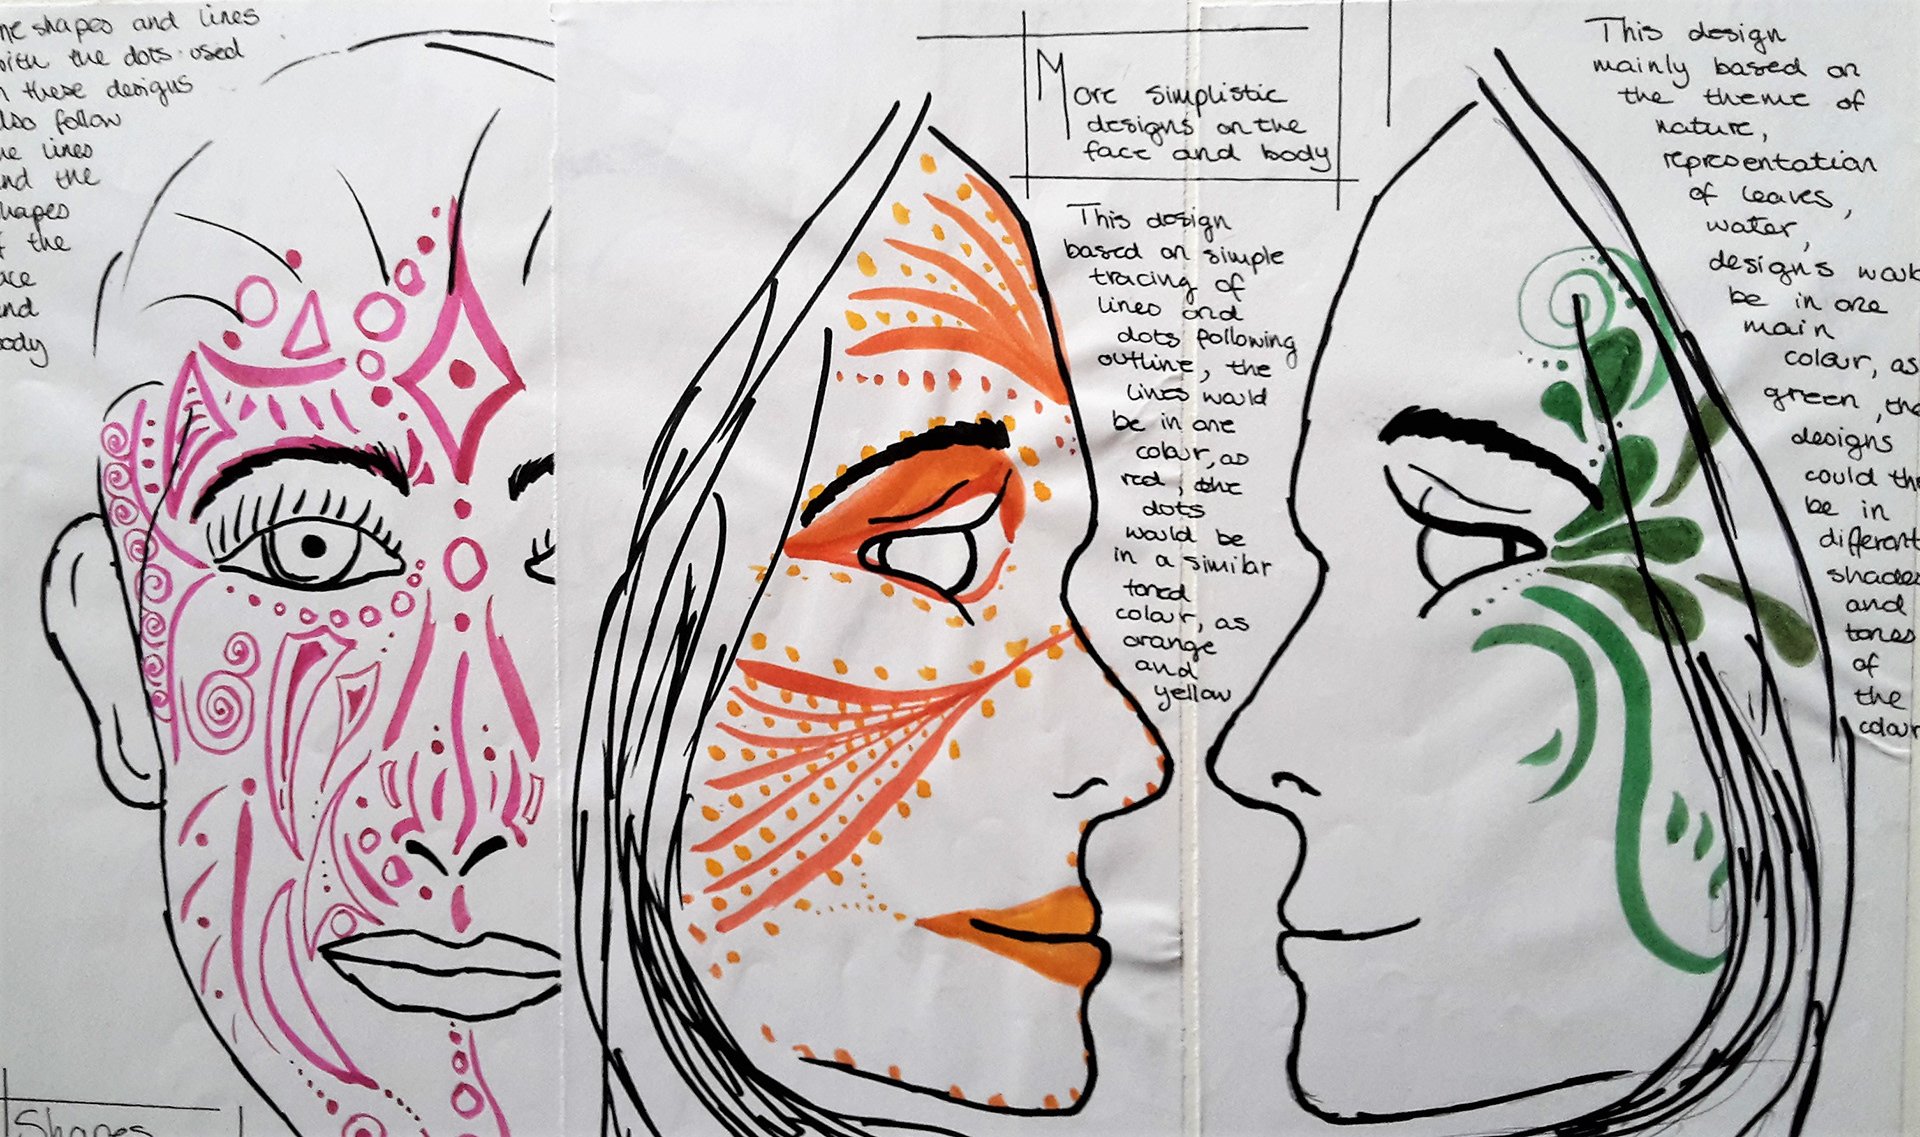 shapes and lines
with the dots used
these designs
also follow
lines
and the
shapes
the
face
and
body
Shapes
More simplistic
designs on the
face and body
This design
based on simple
tracing of
lines and
dots following
outline, the
lines would
be in one
colour, as
red, the
dots
would be
in a similar
toned
colour, as
orange
and
yellow
This design
mainly based on
the theme of
nature,
representation
of leaves,
water,
designs would
be in one
main
colour, as
green, the
designs
could the
be in
different
shades
and
tones
of
the
colour